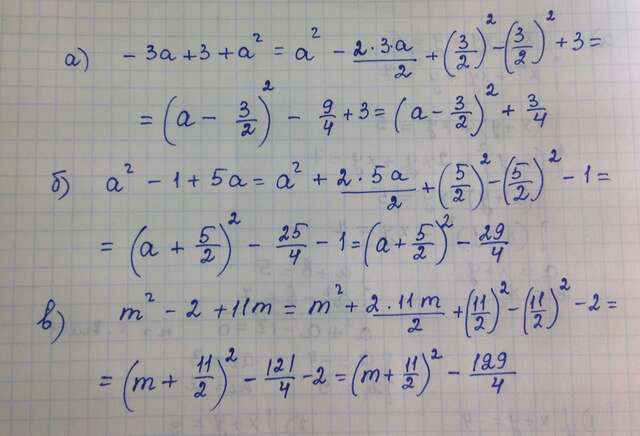 а) - 3a + 3 + a² = a² - (2·3·a)/2 + (3/2)² - (3/2)² + 3 =
= (a - 3/2)² - 9/4 + 3 = (a - 3/2)² + 3/4
б) a² - 1 + 5a = a² + (2·5a)/2 + (5/2)² - (5/2)² - 1 =
= (a + 5/2)² - 25/4 - 1 = (a + 5/2)² - 29/4
в) m² - 2 + 11m = m² + (2·11m)/2 + (11/2)² - (11/2)² - 2 =
= (m + 11/2)² - 121/4 - 2 = (m + 11/2)² - 129/4